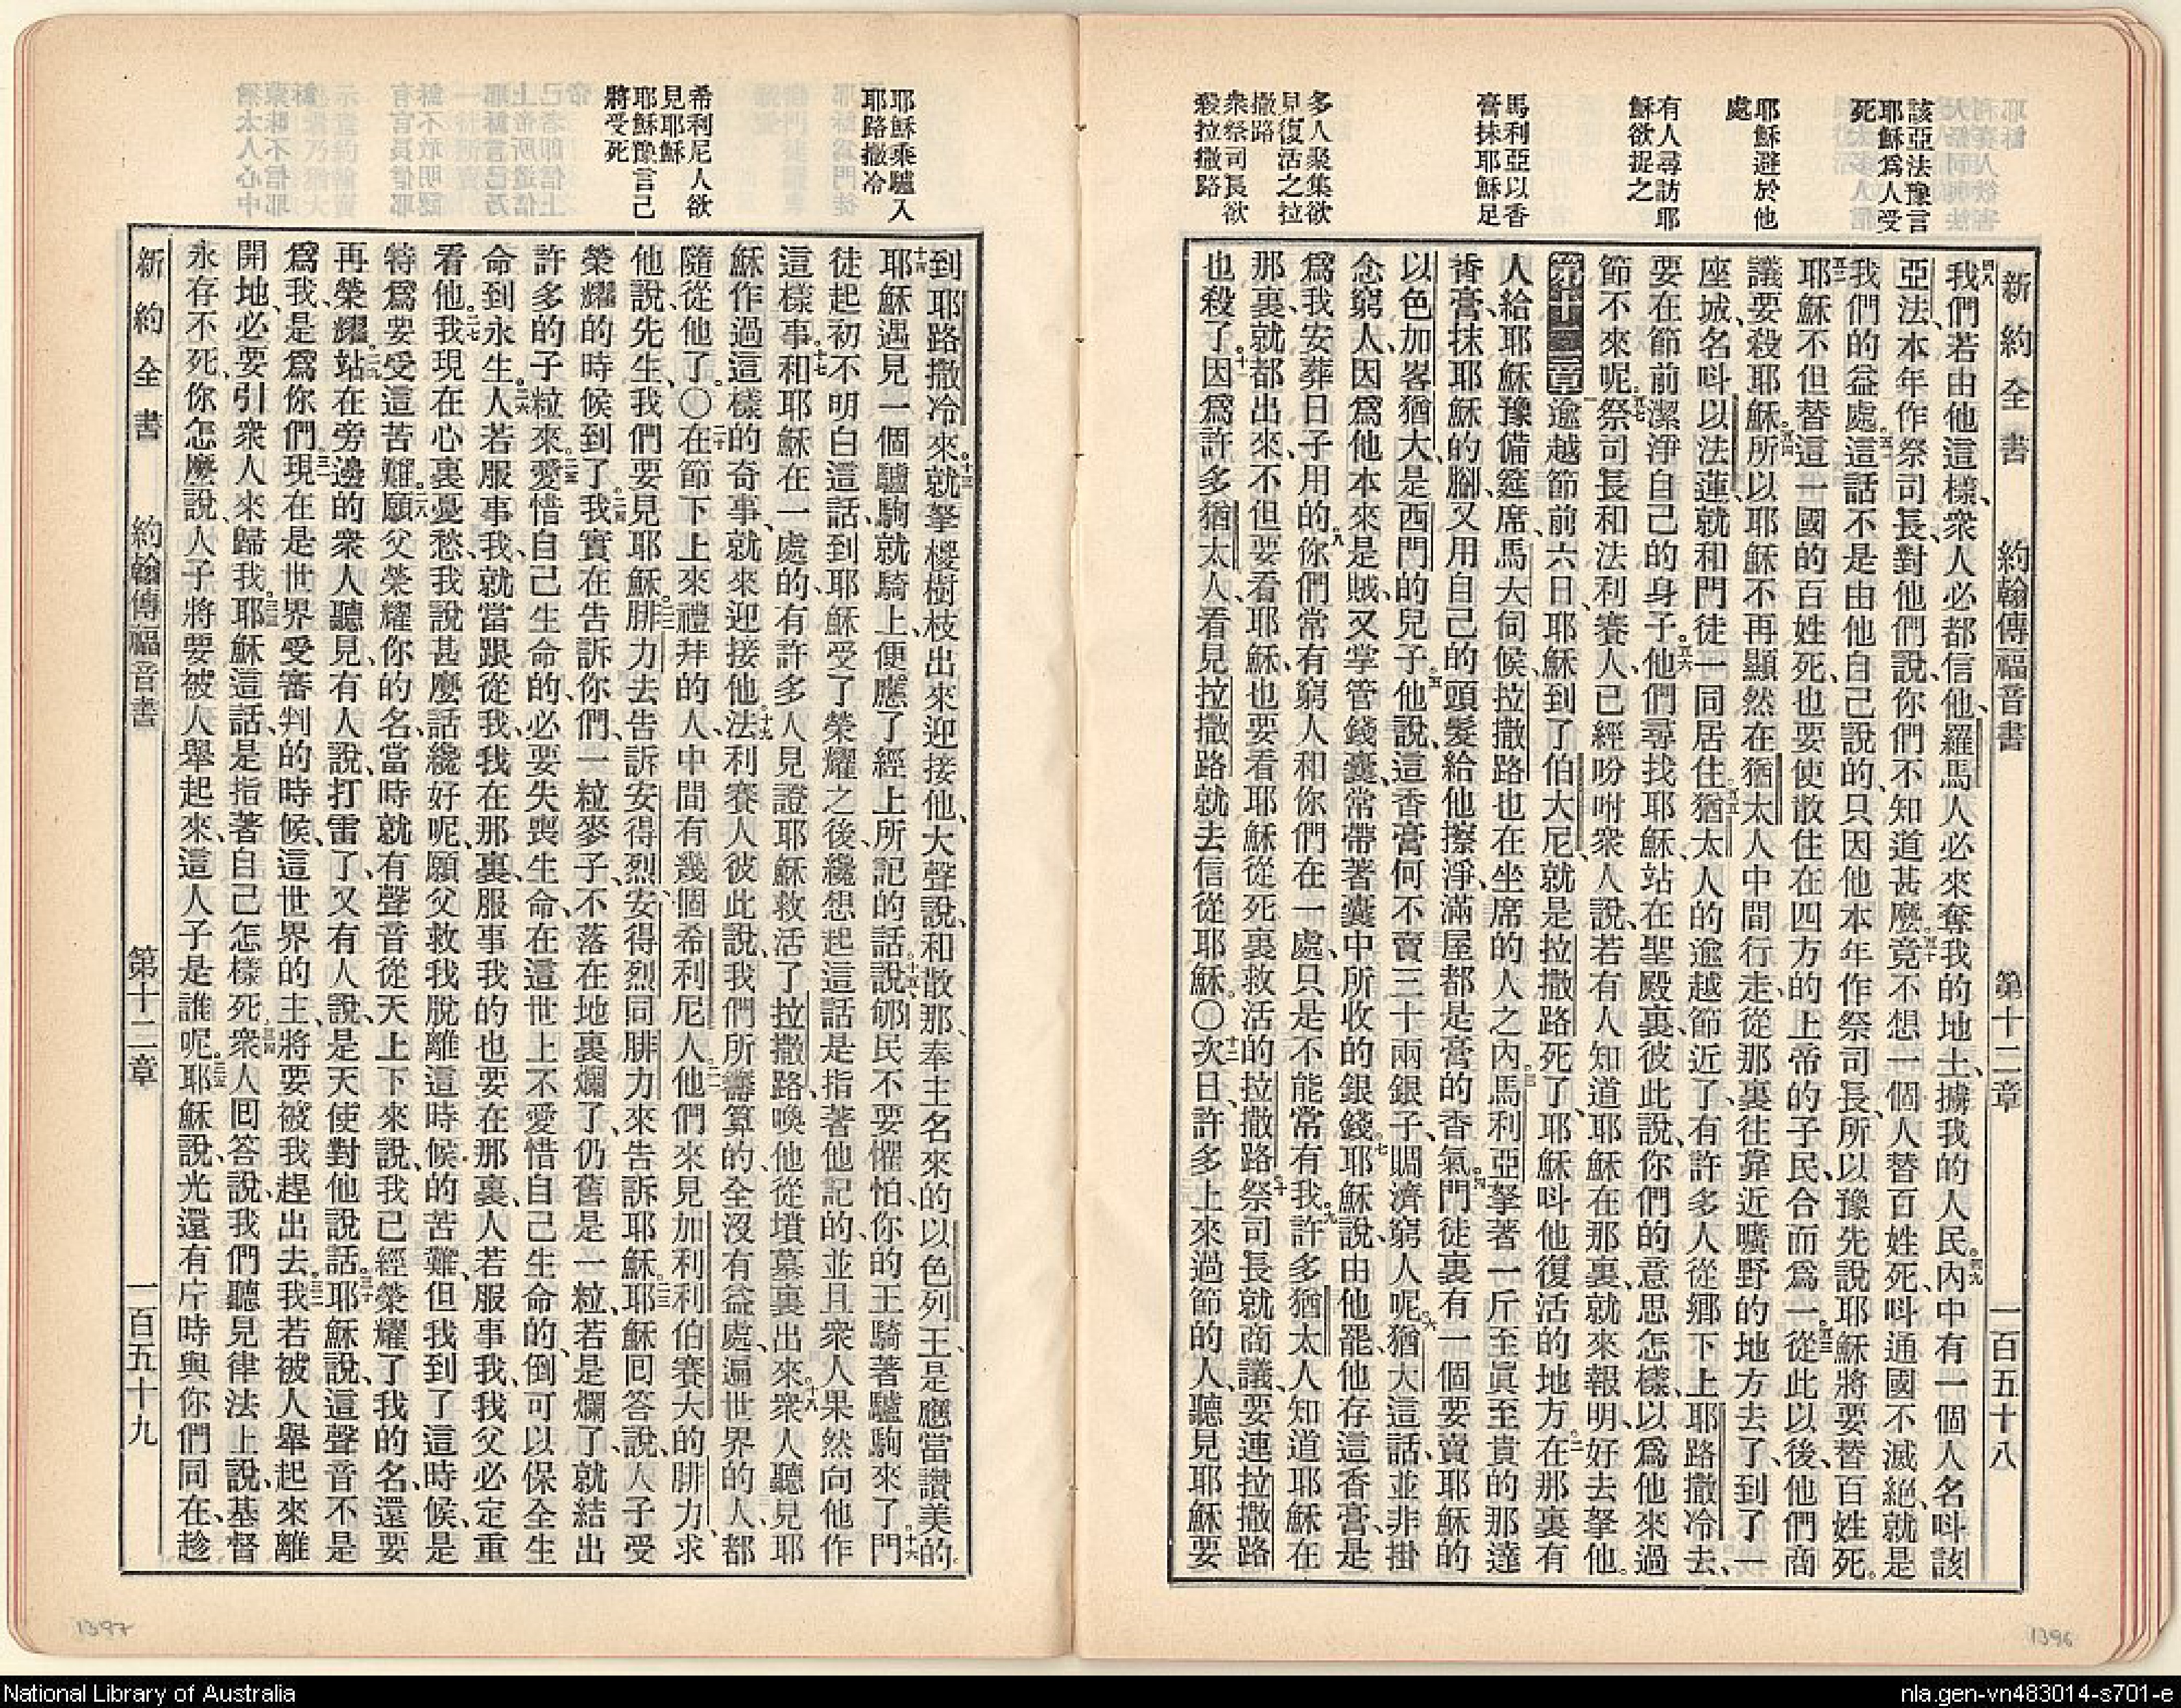 該亞法豫言
耶穌爲人受
死
耶穌避於他
處
有人尋訪耶
穌欲捉之
馬利亞以香
膏抹耶穌足
多人聚集欲
見復活之拉
撒路
衆祭司長欲
殺拉撒路
新約全書 約翰傳福音書 第十二章 一百五十八
四八我們若由他這樣、衆人必都信他、羅馬人必來奪我的地土、擄我的人民。四九內中有一個人名呌該
亞法、本年作祭司長、對他們說、你們不知道甚麼、五十竟不想一個人替百姓死、呌通國不滅絕、就是
我們的益處。五一這話不是由他自己說的、只因他本年作祭司長、所以豫先說耶穌將要替百姓死。
五二耶穌不但替這一國的百姓死、也要使散住在四方的上帝的子民、合而爲一。五三從此以後、他們商
議要殺耶穌。五四所以耶穌不再顯然在猶太人中間行走、從那裏往靠近曠野的地方去了、到了一
座城、名呌以法蓮、就和門徒一同居住。五五猶太人的逾越節近了、有許多人從鄉下上耶路撒冷去、
要在節前潔淨自己的身子。五六他們尋找耶穌、站在聖殿裏、彼此說、你們的意思怎樣、以爲他來過
節不來呢。五七祭司長和法利賽人、已經吩咐衆人說、若有人知道耶穌在那裏、就來報明、好去拏他。
第十二章 一逾越節前六日、耶穌到了伯大尼、就是拉撒路死了、耶穌呌他復活的地方。二在那裏有
人給耶穌豫備筵席、馬大伺候、拉撒路也在坐席的人之內。三馬利亞拏著一斤至眞至貴的那達
香膏、抹耶穌的腳、又用自己的頭髮給他擦淨、滿屋都是膏的香氣。四門徒裏有一個要賣耶穌的
以色加畧猶大、是西門的兒子、五他說、這香膏何不賣三十兩銀子、賙濟窮人呢。六猶大這話、並非掛
念窮人、因爲他本來是賊、又掌管錢囊、常帶著囊中所收的銀錢。七耶穌說、由他罷、他存這香膏、是
爲我安葬日子用的。八你們常有窮人和你們在一處、只是不能常有我。九許多猶太人知道耶穌在
那裏、就都出來、不但要看耶穌、也要看耶穌從死裏救活的拉撒路。十祭司長就商議、要連拉撒路
也殺了。十一因爲許多猶太人、看見拉撒路就去信從耶穌。〇十二次日、許多上來過節的人、聽見耶穌要
耶穌乘驢入
耶路撒冷
希利尼人欲
見耶穌
耶穌豫言己
將受死
到耶路撒冷來、十三就拏椶樹枝出來迎接他、大聲說、和散那、奉主名來的以色列王、是應當讚美的。
十四耶穌遇見一個驢駒、就騎上、便應了經上所記的話、十五說、郇民不要懼怕、你的王騎著驢駒來了。十六門
徒起初不明白這話、到耶穌受了榮耀之後、纔想起這話是指著他記的、並且衆人果然向他作
這樣事。十七和耶穌在一處的、有許多人見證耶穌救活了拉撒路、喚他從墳墓裏出來。十八衆人聽見耶
穌作過這樣的奇事、就來迎接他。十九法利賽人彼此說、我們所籌算的、全沒有益處、遍世界的人、都
隨從他了。〇二十在節下上來禮拜的人、中間有幾個希利尼人、二一他們來見加利利伯賽大的腓力、求
他說、先生、我們要見耶穌。二二腓力去告訴安得烈、安得烈同腓力來告訴耶穌。二三耶穌回答說、人子受
榮耀的時候到了。二四我實在告訴你們、一粒麥子不落在地裏爛了、仍舊是一粒、若是爛了、就結出
許多的子粒來。二五愛惜自己生命的、必要失喪生命、在這世上不愛惜自己生命的、倒可以保全生
命到永生。二六人若服事我、就當跟從我、我在那裏、服事我的也要在那裏、人若服事我、我父必定重
看他。二七我現在心裏憂愁、我說甚麼話纔好呢、願父救我脫離這時候的苦難、但我到了這時候、是
特爲要受這苦難。二八願父榮耀你的名、當時就有聲音從天上下來說、我已經榮耀了我的名、還要
再榮耀。二九站在旁邊的衆人聽見、有人說打雷了、又有人說、是天使對他說話。三十耶穌說、這聲音不是
爲我、是爲你們。三一現在是世界受審判的時候、這世界的主、將要被我趕出去。三二我若被人舉起來離
開地、必要引衆人來歸我。三三耶穌這話、是指著自己怎樣死。三四衆人回答說、我們聽見律法上說、基督
永存不死、你怎麼說人子將要被人舉起來、這人子是誰呢。三五耶穌說、光還有片時與你們同在、趁
新約全書 約翰傳福音書 第十二章 一百五十九
1397
1396
National Library of Australia
nla.gen-vn483014-s701-e